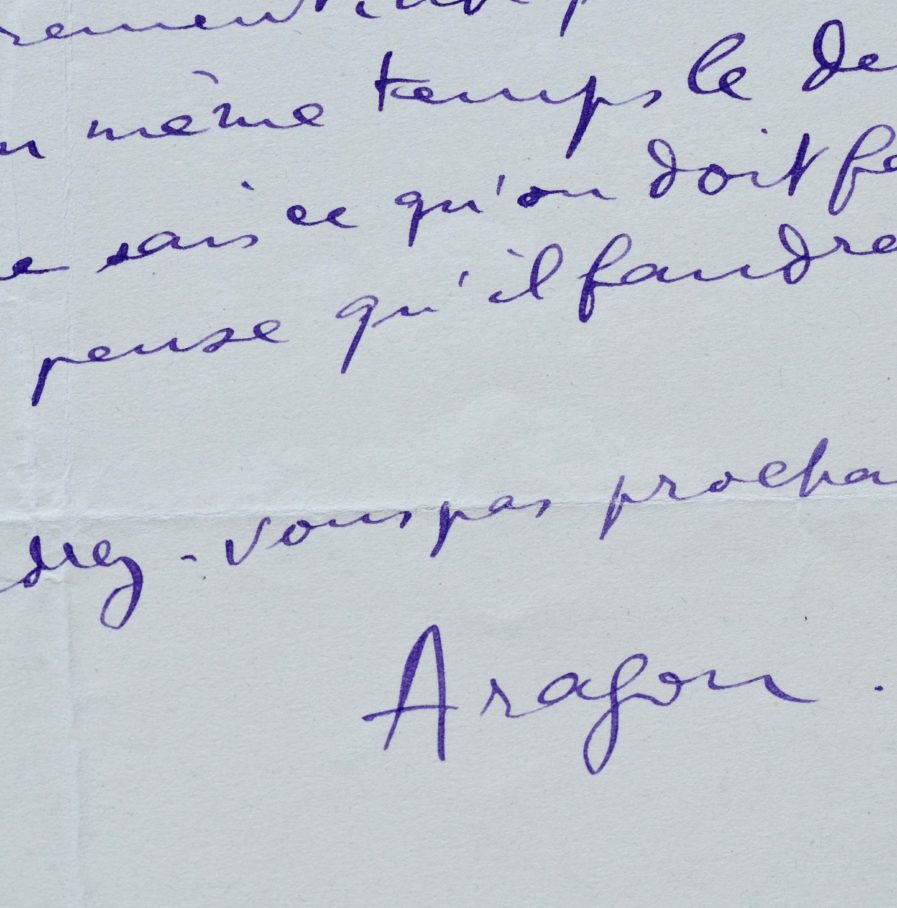 n même temps le de
e sais ce qu'on doit fa
pense qu'il faudra
drez-vous pas procha
Aragon.